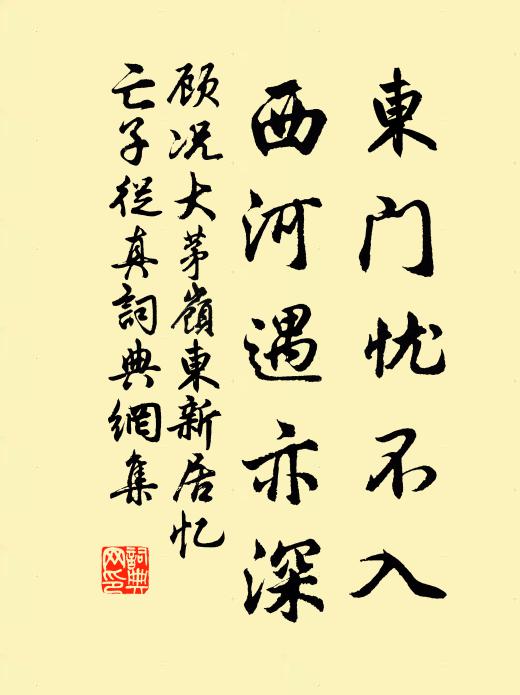 東门忧不入
西河遇亦深
顾况大茅嶺東新居忆
亡子從真詞典網集
詞典网印